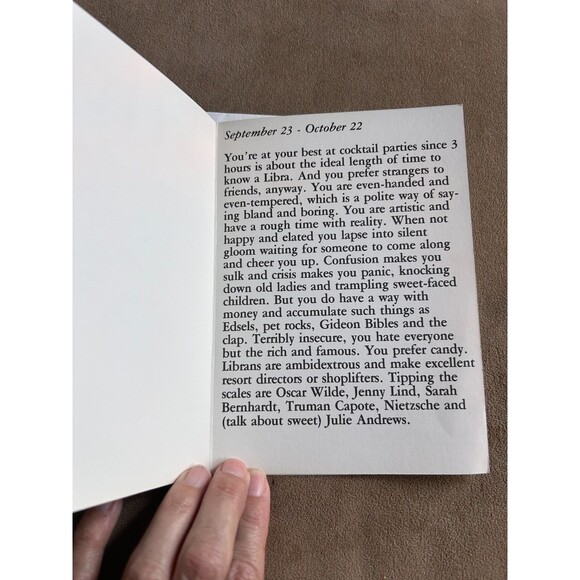 September 23 - October 22
You're at your best at cocktail parties since 3
hours is about the ideal length of time to
know a Libra. And you prefer strangers to
friends, anyway. You are even-handed and
even-tempered, which is a polite way of say-
ing bland and boring. You are artistic and
have a rough time with reality. When not
happy and elated you lapse into silent
gloom waiting for someone to come along
and cheer you up. Confusion makes you
sulk and crisis makes you panic, knocking
down old ladies and trampling sweet-faced
children. But you do have a way with
money and accumulate such things as
Edsels, pet rocks, Gideon Bibles and the
clap. Terribly insecure, you hate everyone
but the rich and famous. You prefer candy.
Librans are ambidextrous and make excellent
resort directors or shoplifters. Tipping the
scales are Oscar Wilde, Jenny Lind, Sarah
Bernhardt, Truman Capote, Nietzsche and
(talk about sweet) Julie Andrews.